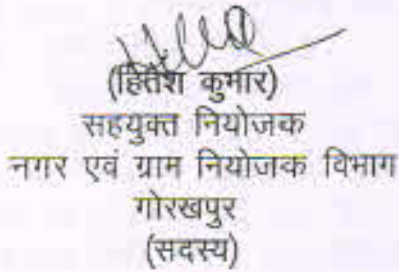 (हितेश कुमार)
सहयुक्त नियोजक
नगर एवं ग्राम नियोजक विभाग
गोरखपुर
(सदस्य)